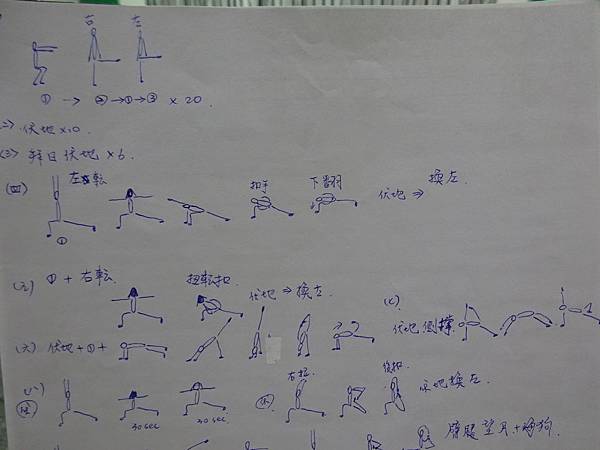 右 左
① → ② → ① → ③ × 20
(二) 伏地 ×10.
(三) 拜日伏地 × 6.
(四) 左転 扣手 下翻 伏地 ⇒ 換左.
①
(五) ① + 右転. 扭転扣 伏地 ⇒ 換左. (七)
(六) 伏地 + ① + 伏地 側撐
(八) 右 後扣 伏地換左.
30 sec 30 sec
劈腿望月 + 狗.